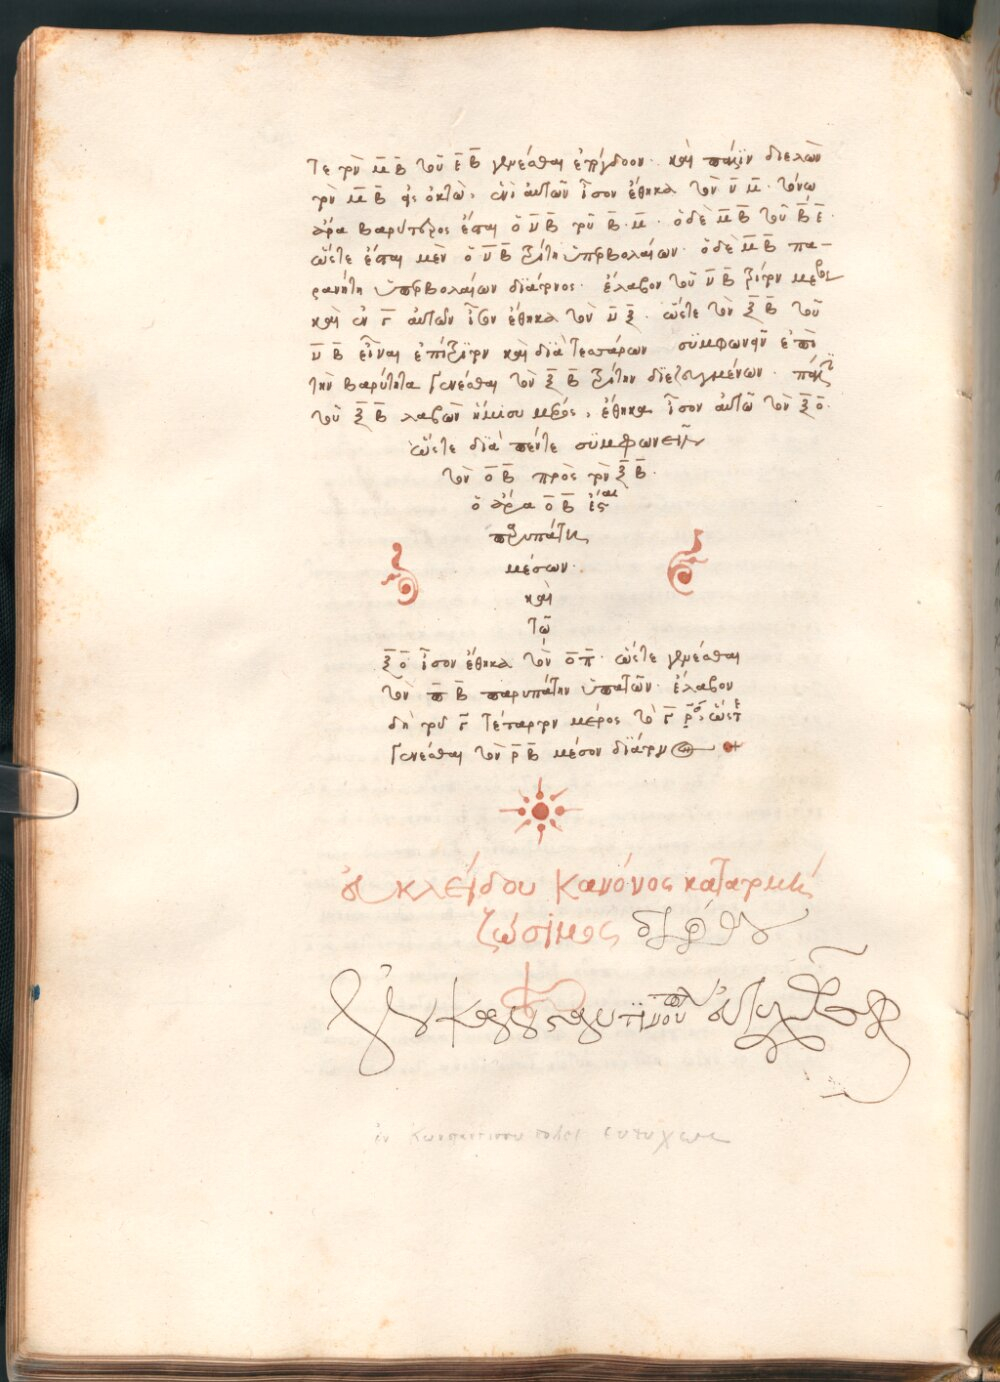 τε τὸν μ̅ β̅ τοῦ ε̅ β̅ γενέσθαι ἐπόγδοον· καὶ πάλιν διελὼν
τὸν μ̅ β̅ εἰς ὀκτὼ, ἑνὶ αὐτῶν ἴσον ἔθηκα τὸν ν̅ μ̅· τόνῳ
ἄρα βαρύτερος ἔσται ὁ ν̅ β̅ τοῦ β̅ μ̅· ὁ δὲ μ̅ β̅ τοῦ β̅ ε̅·
ὥστε ἔσται μὲν ὁ ν̅ β̅ τρίτη ὑπερβολαίων· ὁ δὲ μ̅ β̅ πα-
ρανήτη ὑπερβολαίων διάτονος· ἔλαβον τοῦ ν̅ β̅ τρίτον μέρος
καὶ ἑν γ̅ αὐτῶν ἴσον ἔθηκα τὸν ν̅ ξ̅· ὥστε τὸν ξ̅ β̅ τοῦ
ν̅ β̅ εἶναι ἐπίτριτον καὶ διὰ τεσσάρων συμφωνεῖν ἐπὶ
τὴν βαρύτητα γενέσθαι τὸν ξ̅ β̅ τρίτην διεζευγμένων· πάλιν
τοῦ ξ̅ β̅ λαβὼν ἥμισυ μέρος, ἔθηκα ἴσον αὐτῶ τὸν ξ̅ ο̅·
ὥστε διὰ πέντε συμφωνεῖν
τὸν ο̅ β̅ πρὸς τὸν ξ̅ β̅·
ὁ ἄρα ο̅ β̅ ἔσται
παρυπάτη
μέσων·
καὶ
τῶ
ξ̅ ο̅ ἴσον ἔθηκα τὸν ο̅ π̅· ὥστε γενέσθαι
τὸν π̅ β̅ παρυπάτην ὑπατῶν· ἔλαβον
δὴ τοῦ γ̅ τέταρτον μέρος τὸ γ̅ ρ̅· ὥστε
γενέσθαι τὸν ρ̅ β̅ μέσον διάτονον
εὐκλείδου κανόνος κατατομή
ζώσιμος
ἐν κωνσταντινουπόλει εὐτυχῶς
ἐν κωνσταντινουπόλει ευτυχως